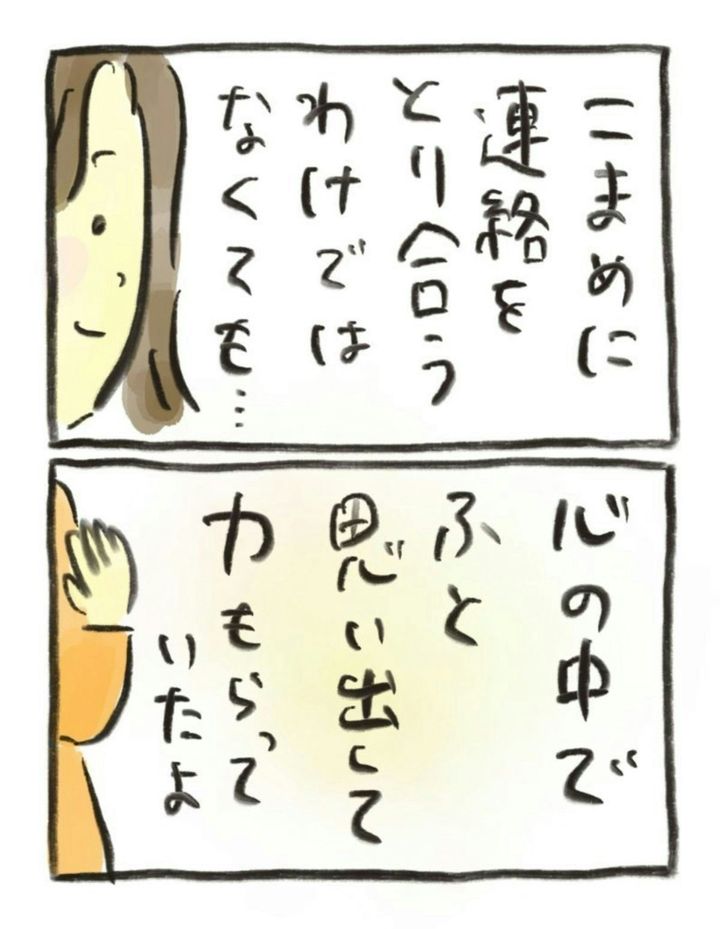 こまめに
連絡を
とり合う
わけでは
なくても…
心の中で
ふと
思い出して
力もらって
いたよ